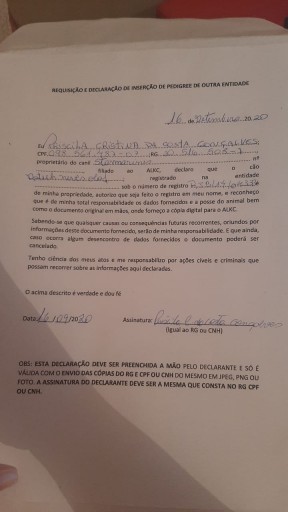 REQUISIÇÃO E DECLARAÇÃO DE INSERÇÃO DE PEDIGREE DE OUTRA ENTIDADE
16 de Setembro de 20
Eu Priscila CRISTINA DA COSTA GONÇALVES
CPF RG
proprietário do canil nº
filiado ao ALKC, declaro que o cão
registrado na entidade
sob o número de registro
de minha propriedade, autorizo que seja feito o registro em meu nome, e reconheço
que é de minha total responsabilidade os dados fornecidos e a posse do animal bem
como o documento original em mãos, onde forneço a cópia digital para o ALKC.
Sabendo-se que quaisquer causas ou consequências futuras recorrentes, oriundos por
informações deste documento fornecido, serão de minha responsabilidade. E que ainda,
caso ocorra algum desencontro de dados fornecidos o documento poderá ser
cancelado.
Tenho ciência dos meus atos e me responsabilizo por ações cíveis e criminais que
possam recorrer sobre as informações aqui declaradas.
O acima descrito é verdade e dou fé
Data: 16/09/2020 Assinatura:
(Igual ao RG ou CNH)
OBS: ESTA DECLARAÇÃO DEVE SER PREENCHIDA A MÃO PELO DECLARANTE E SÓ É
VÁLIDA COM O ENVIO DAS CÓPIAS DO RG E CPF OU CNH DO MESMO EM JPEG, PNG OU
FOTO. A ASSINATURA DO DECLARANTE DEVE SER A MESMA QUE CONSTA NO RG CPF
OU CNH.